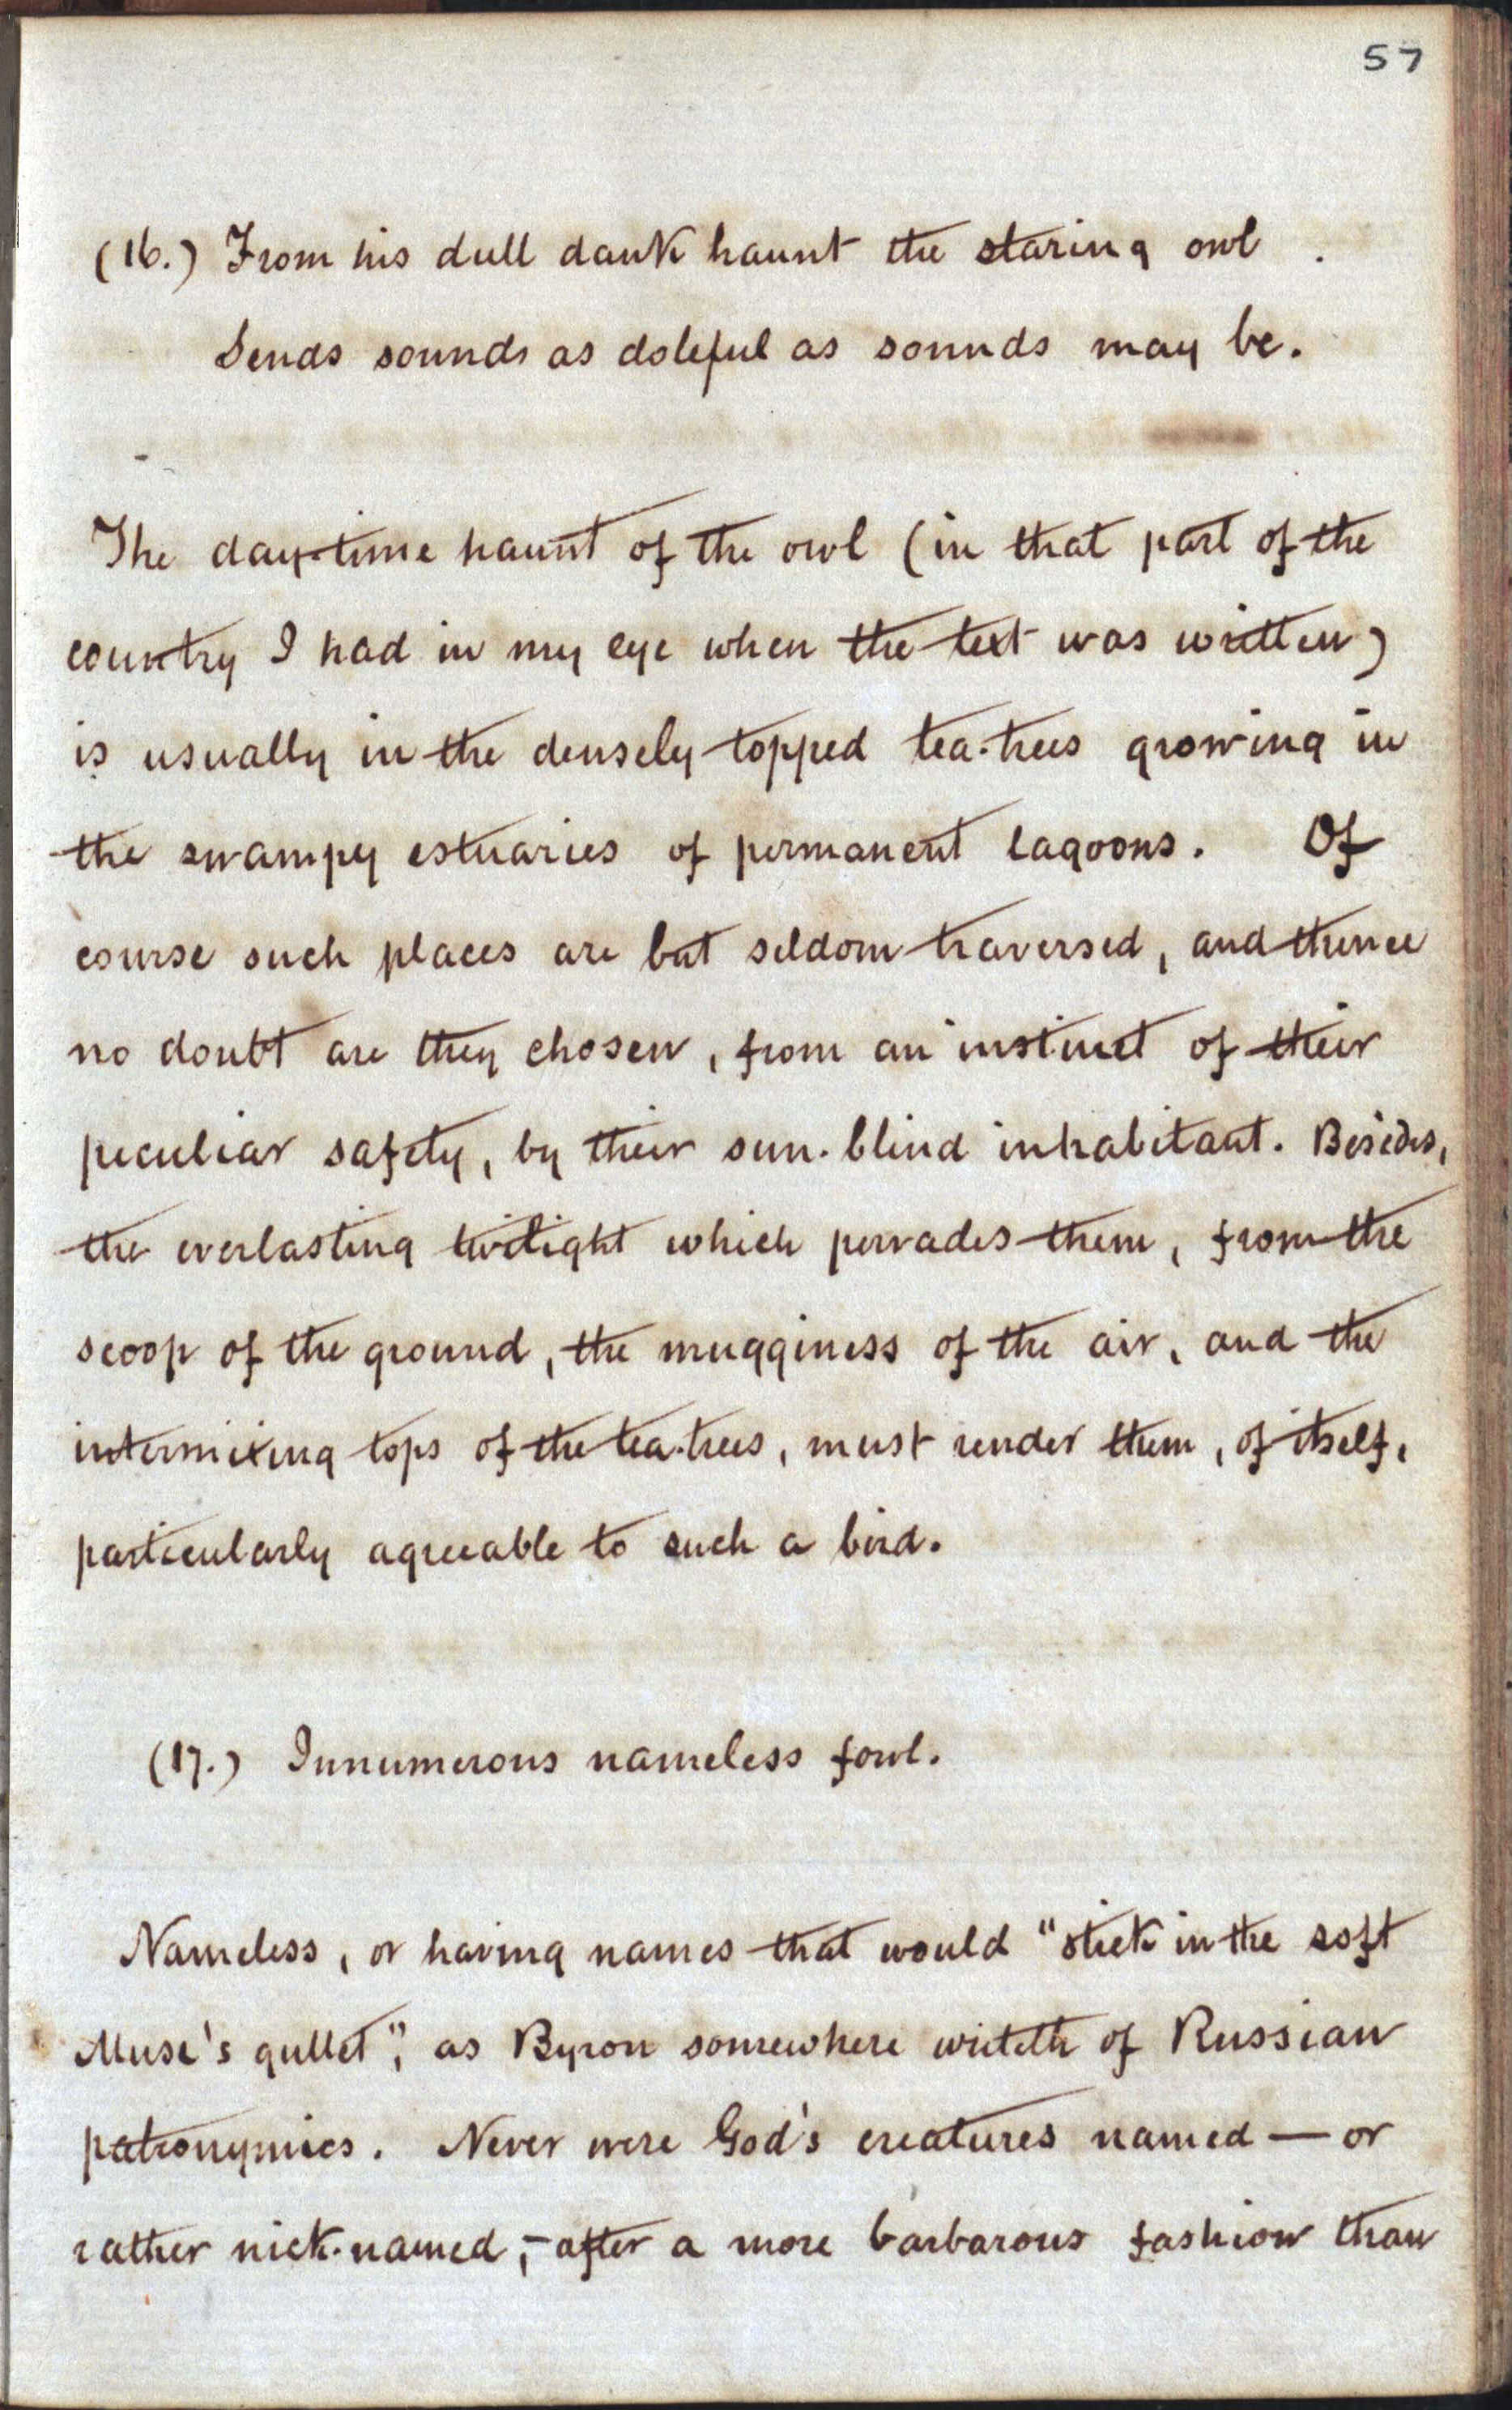 57
(16.) From his dull dank haunt the staring owl .
Sends sounds as doleful as sounds may be.
The day-time haunt of the owl (in that part of the
country I had in my eye when the text was written)
is usually in the densely topped tea-trees growing in
the swampy estuaries of permanent lagoons. Of
course such places are but seldom traversed, and thence
no doubt are they chosen, from an instinct of their
peculiar safety, by their sun-blind inhabitant. Besides,
the everlasting twilight which pervades them, from the
scoop of the ground, the mugginess of the air, and the
intermixing tops of the tea-trees, must render them, of itself,
particularly agreeable to such a bird.
(17.) Innumerous nameless fowl.
Nameless, or having names that would "stick in the soft
Muse's gullet", as Byron somewhere writeth of Russian
patronymics. Never were God's creatures named — or
rather nick-named, — after a more barbarous fashion than